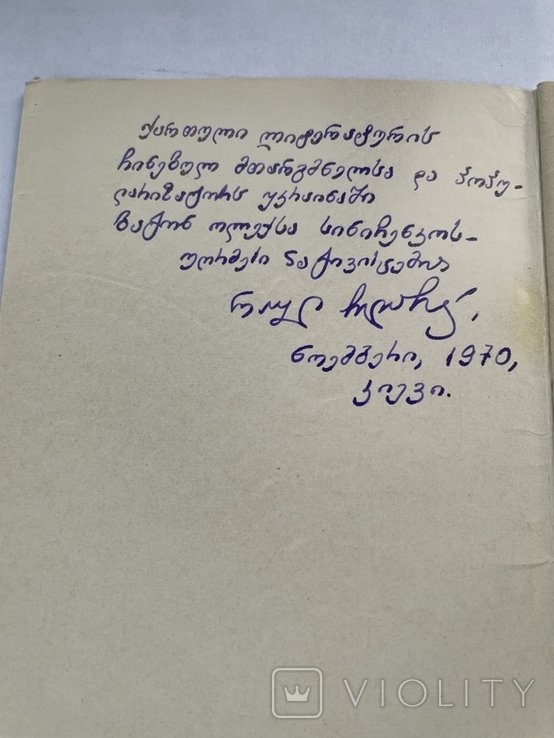 ქართული ლიტერატურის
ჩინებულ მთარგმნელსა და პოპუ-
ლარიზატორს უკრაინაში
ბატონ ოლექსა სინიჩენკოს -
უღრმესი პატივისცემით
რაულ ჩილაჩავა,
ნოემბერი, 1970,
კიევი.
VIOLITY